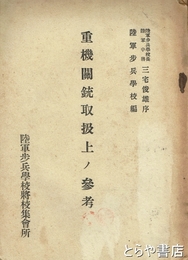 陸軍歩兵學校長
陸軍中將 三宅俊雄序
陸軍歩兵學校編
重機關銃取扱上ノ參考
陸軍歩兵學校將校集會所
古書
とらや書店